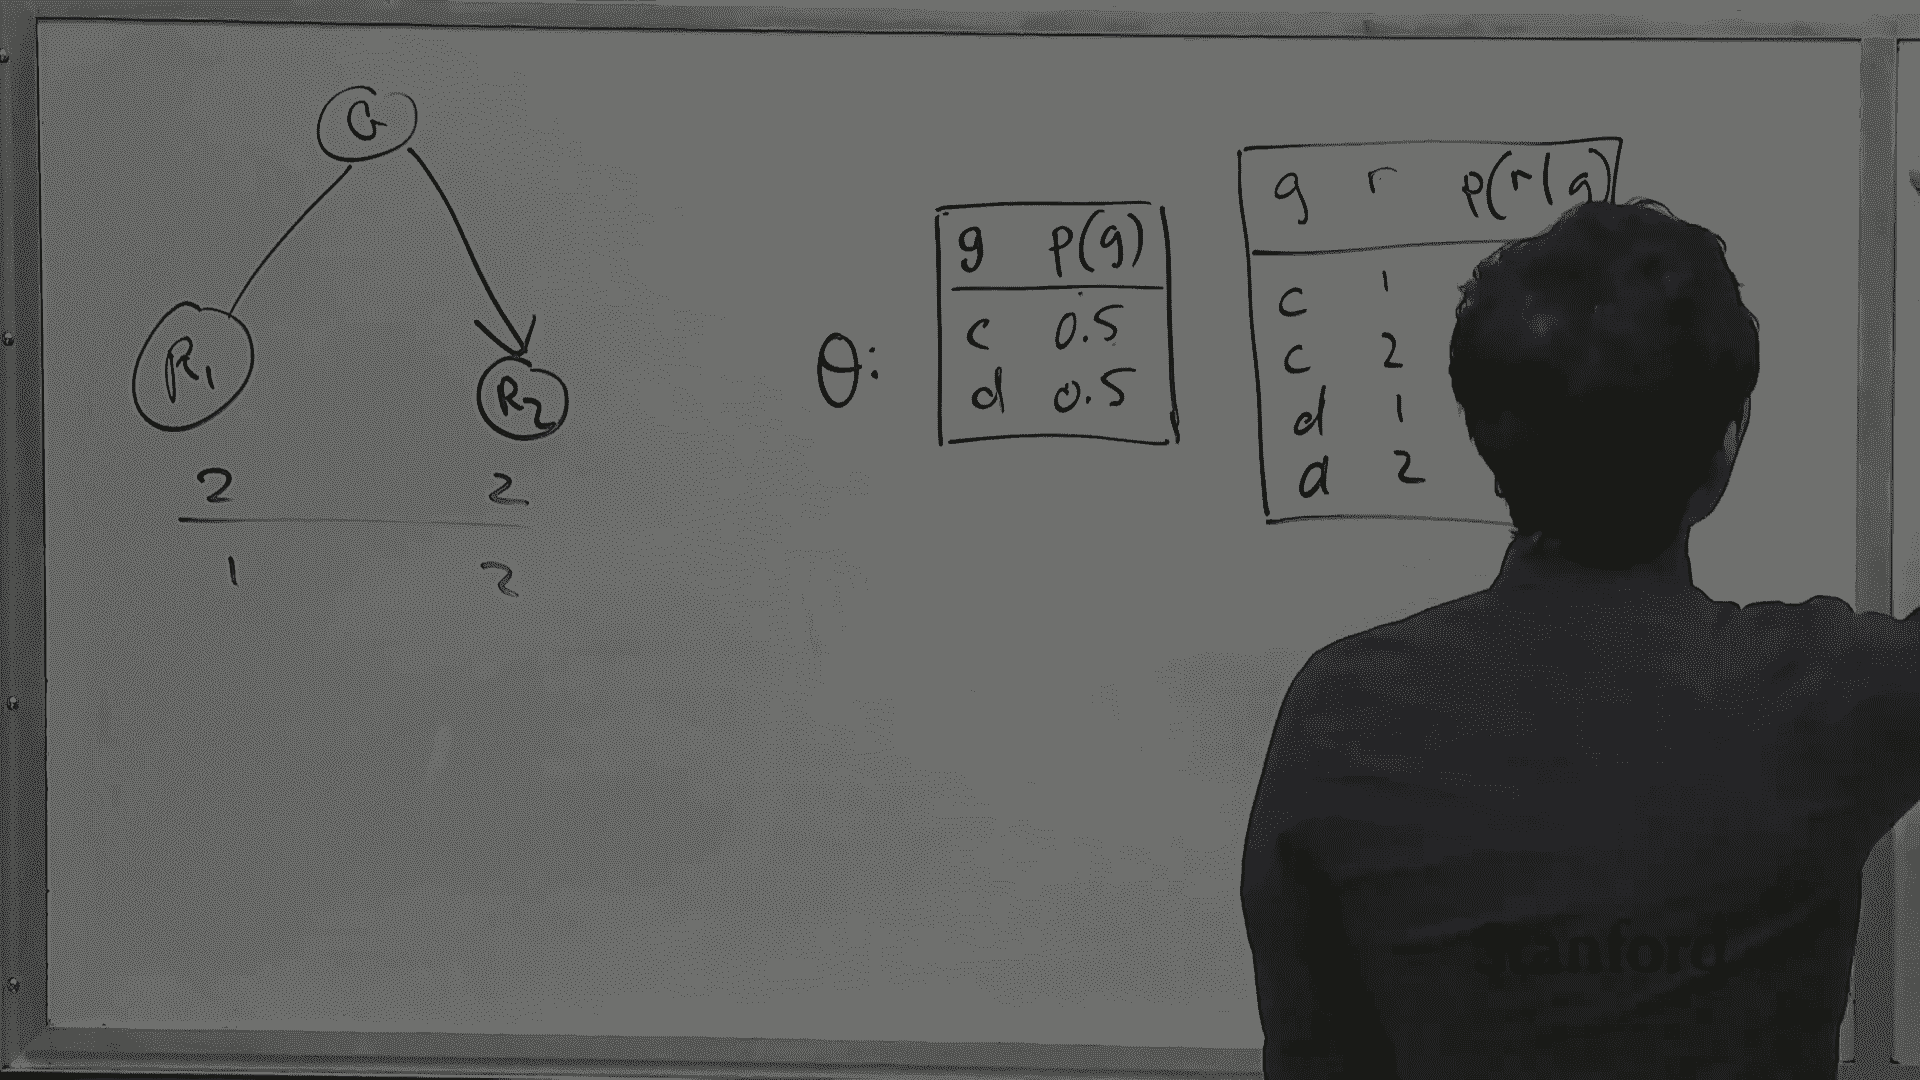 G
R1 R2
2 2
1 2
θ:
g p(g)
c 0.5
d 0.5
g r p(r|g)
c 1
c 2
d 1
d 2
Stanford